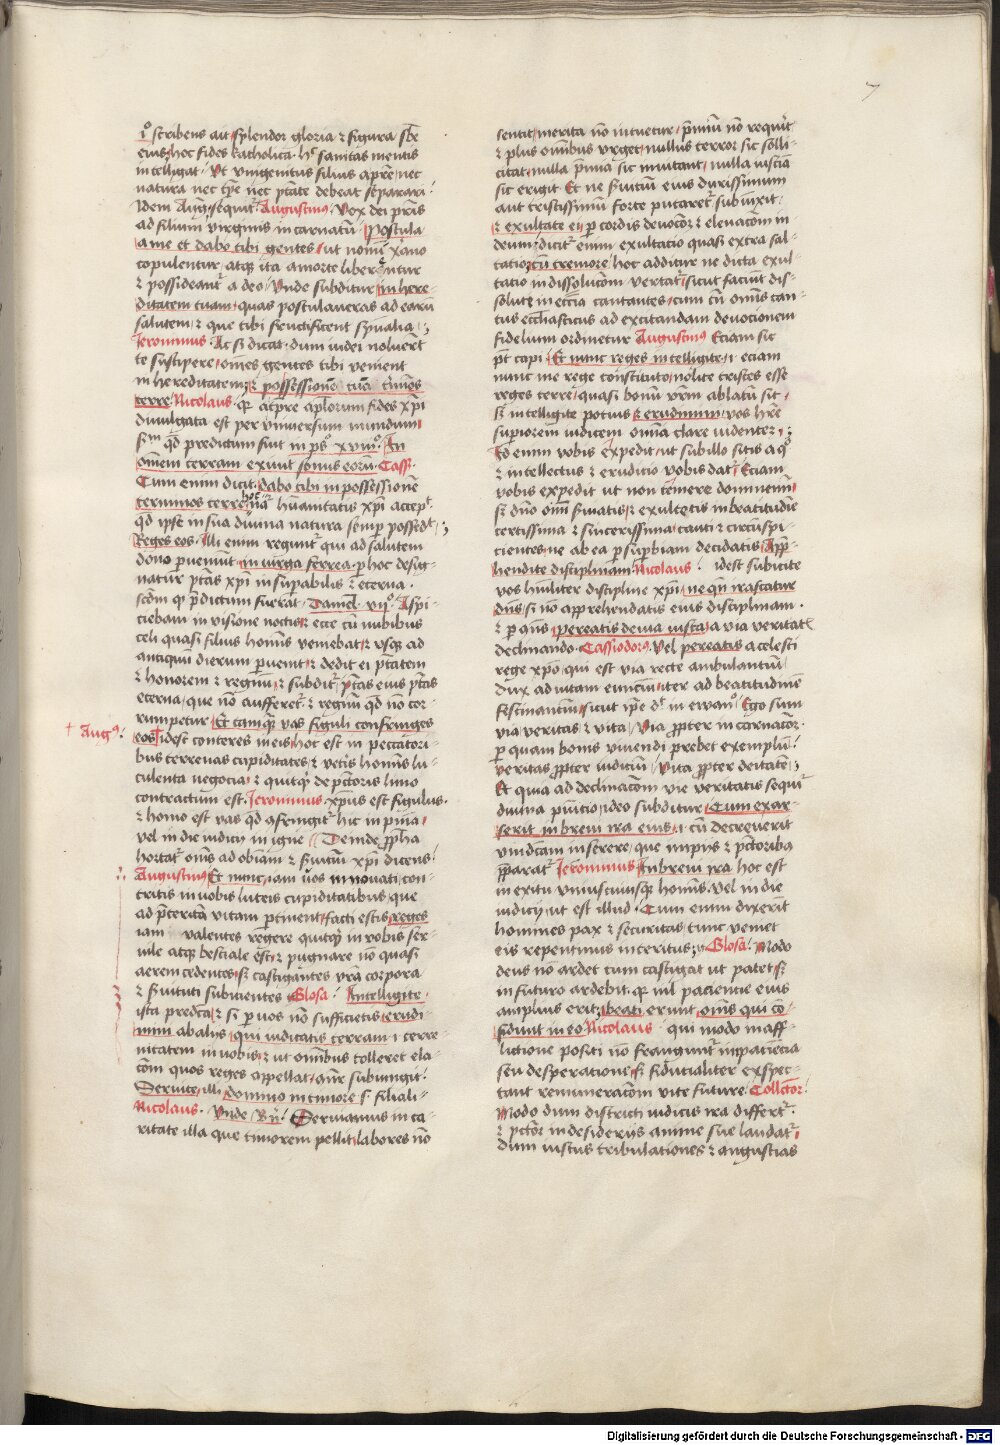 7
i° scribens ait splendor gloria et figura sbe
eius hoc fides katholica. hec sanitas mentis
intelligat. Ut unigenitus filius a patre nec
natura nec tpe nec ptate debeat separari.
Idem Aug. sequit. Augustinus. Vox dei pris
ad filium virginis incarnatum. Postula
a me et dabo tibi gentes ut nomini xpiano
copulentur atque ita a morte liberentur
et possideantur a deo. Unde subditur in here-
ditatem tuam quas postulaveras ad earum
salutem et que tibi fructificent spiritualia
Jeronimus. Ac si dicat dum iudei noluerunt
te suscipere omnes gentes tibi venient
in hereditatem et possessionem tuam terminos
terre. Nicolaus. quia apostolorum fides xpi
divulgata est per universum mundum
secundum quod predictum fuit in ps° xviii°. In
omnem terram exivit sonus eorum. Cass.
Cum enim dicit dabo tibi in possessionem
terminos terre hoc natura humanitatis xpi accepit
quod ipse in sua divina natura semper possedit
Reges eos. Illi enim reguntur qui ad salutem
dono perveniunt in virga ferrea. per hoc desig-
natur ptas xpi insuperabilis et eterna.
secundum quod predictum fuerat. Daniel. vii°. Aspi-
ciebam in visione noctis et ecce cum nubibus
celi quasi filius hominis veniebat et usque ad
antiquum dierum pervenit et dedit ei ptatem
et honorem et regnum et subditur ptas eius ptas
eterna que non aufferetur et regnum quod non cor-
rumpetur. Et tamquam vas figuli confringes
† Aug9. eos idest conteres in eis hoc est in peccatori-
bus terrenas cupiditates et veteris hominis lu-
culenta negocia et quitquid de pctoris limo
contractum est. Jeronimus. xpus est figulus.
et homo est vas quod confringitur hic in pnia
vel in die iudicii in igne. Deinde ppha
hortatur omnes ad obediam et servitium xpi dicens.
Augustinus Et nunc iam vos innovati con-
tritis in vobis luteis cupiditatibus que
ad preteritam vitam pertinent facti estis reges
iam valentes regere quitquid in vobis ser-
vile atque bestiale est et pugnare non quasi
aerem cedentes sed castigantes vestra corpora
et servituti subicientes. Glosa. Intelligite
ista predicta et si per vos non sufficietis erudi-
mini ab aliis qui iudicatis terram i terre-
nitatem in vobis et ut omnibus tolleret ela-
coem quos reges appellat aliter subiungit.
Servite illi domino in timore s filiali.
Nicolaus. Unde Bn. Serviamus in ca-
ritate illa que timorem pellit labores non
sentit merita non intuetur premium non requirit
et plus omnibus urget nullus terror sic solli-
citat nulla premia sic invitant nulla iusticia
sic erigit Et ne servitium eius durissimum
aut tristissimum forte putaretur subiunxit
et exultate ei per cordis devocoem et elevacoem in
deum dicitur enim exultatio quasi extra sal-
tatio cum tremore hoc additur ne dicta exul-
tatio in dissolucoem vertatur sicut faciunt dis-
solute in ecclesia cantantes cum cum omnis can-
tus ecclesiasticus ad excitandam devocionem
fidelium ordinetur Augustinus Eciam sic
potest capi Et nunc reges intelligite i eciam
nunc me rege constituto nolite tristes esse
reges terre quasi bonum vestrum ablatum sit
sed intelligite potius et erudimini vos habere
superiorem iudicem omnia clare videntem
Ed enim vobis expedit ut sub illo sitis a quo
et intellectus et eruditio vobis datur. Eciam
vobis expedit ut non temere dominemini
sed domino omnium serviatis et exultetis in beatitudine
certissima et sincerissima cauti et circumspi-
cientes ne ab ea per superbiam decidatis Appre-
hendite disciplinam. Nicolaus. idest subicite
vos humiliter discipline xpi ne quando irascatur
dns si non apprehendatis eius disciplinam.
et per consequens pereatis de via iusta a via veritatis
declinando. Cassiodorus Vel pereatis a celesti
rege xpo qui est via recte ambulantium
dux ad vitam euncium iter ad beatitudinem
festinantium sicut ipse dicit in ewan°. Ego sum
via veritas et vita. Via propter incarnacoem.
per quam bonis vivendi prebet exemplum.
veritas propter iudicium. Vita propter deitatem.
Et quia ad declinacoem vie veritatis sequitur
divina punicio ideo subditur Cum exar-
serit in brevi ira eius i cum decreverit
vindictam inferere que impiis et pctoribus
preparatur Jeronimus In brevi ira hoc est
in exitu uniuscuiusque hominis vel in die
iudicii ut est illud. Cum enim dixerint
homines pax et securitas tunc veniet
eis repentinus interitus. Glosa. Modo
deus non ardet cum castigat ut patet sed
in futuro ardebit quia nil paciencie eius
amplius erit. beati erunt omnes qui con-
fidunt in eo Nicolaus. qui modo in aff-
lictione positi non franguntur impaciencia
seu desperatione sed fiducialiter exspec-
tant remuneracoem vite future. Collector.
Modo dum districti iudicis ira differtur.
et pctor in desideriis anime sue laudatur
dum iustus tribulationes et angustias
Digitalisierung gefördert durch die Deutsche Forschungsgemeinschaft - DFG